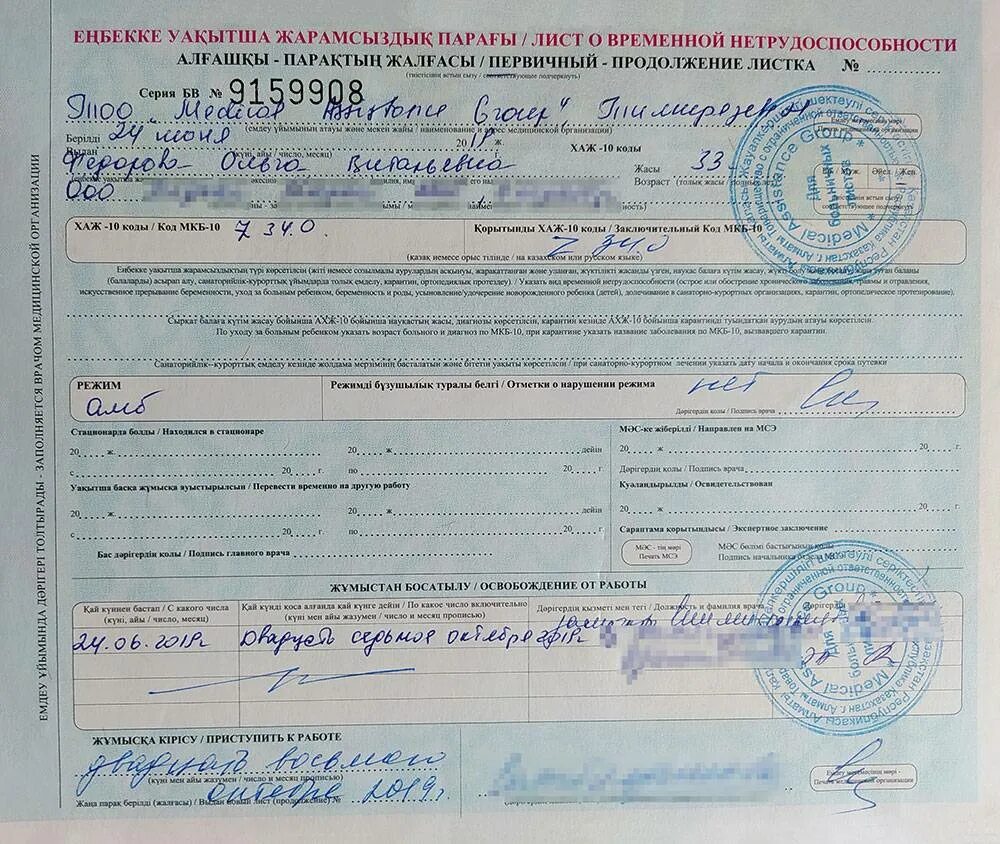 ЕҢБЕККЕ УАҚЫТША ЖАРАМСЫЗДЫҚ ПАРАҒЫ / ЛИСТ О ВРЕМЕННОЙ НЕТРУДОСПОСОБНОСТИ
АЛҒАШҚЫ - ПАРАҚТЫҢ ЖАЛҒАСЫ / ПЕРВИЧНЫЙ - ПРОДОЛЖЕНИЕ ЛИСТКА №
(тиістісінің астын сызу / соответствующее подчеркнуть)
Серия БВ № 9159908
ТОО „Medical Assistance Group"
(емдеу ұйымының атауы және мекен жайы / наименование и адрес медицинской организации)
Берілді 24 июня 2019 ж.
Выдан (күні, айы / число, месяц) ХАЖ -10 коды
Федорова Ольга Витальевна Жасы 33
Возраст
ООО
ХАЖ -10 коды / Код МКБ-10 Z 34.0 Қорытынды ХАЖ-10 коды / Заключительный Код МКБ-10
Z 34.0
(қазақ немесе орыс тілінде / на казахском или русском языке)
Еңбекке уақытша жарамсыздықтың түрі көрсетілсін (жіті немесе созылмалы аурулардың асқынуы, жарақаттанған және уланған, жүктілікті жасанды үзген, науқас балаға күтім жасау,
(балаларды) асырап алу, санаторийлік-курорттық ұйымдарда толық емдеу, карантин, ортопедиялық протездеу) / Указать вид временной нетрудоспособности (острое или обострение хронического заболевания, травмы и отравления,
искусственное прерывание беременности, уход за больным ребенком, беременность и роды, усыновление/удочерение новорожденного ребенка (детей), долечивание в санаторно-курортных организациях, карантин, ортопедическое протезирование).
Сырқат балаға күтім жасау бойынша АХЖ-10 бойынша науқастың жасы, диагнозы көрсетілсін, карантин кезінде АХЖ-10 бойынша карантинді туындатқан аурудың атауы көрсетілсін.
По уходу за больным ребенком указать возраст больного и диагноз по МКБ-10, при карантине указать название заболевания по МКБ-10, вызвавшего карантин.
Санаторийлік-курорттық емделу кезінде жолдама мерзімінің басталатын және бітетін уақыты көрсетілсін / при санаторно-курортном лечении указать дату начала и окончания срока путевки
РЕЖИМ Режимді бұзушылық туралы белгі / Отметки о нарушении режима нет
Амб
Дәрігердің қолы / Подпись врача
Стационарда болды / Находился в стационаре МӘС-ке жіберілді / Направлен на МСЭ
20 ж. 20 ж дейін 20 ж 20 г.
с 20 г. по 20 г. Дәрігердің қолы / Подпись врача
Уақытша басқа жұмысқа ауыстырылсын / Перевести временно на другую работу Куәландырылды / Освидетельствован
20 ж. 20 ж дейін 20 ж 20 г.
с 20 г. по 20 г. Сараптама қорытындысы / Экспертное заключение
Бас дәрігердің қолы / Подпись главного врача МӘС - тің мөрі
Печать МСЭ
МӘС бөлімі бастығының қолы
Подпись начальника отдела МСЭ
ЖҰМЫСТАН БОСАТЫЛУ / ОСВОБОЖДЕНИЕ ОТ РАБОТЫ
Қай күннен бастап / С какого числа
(күні, айы / число, месяц)
Қай күнді қоса алғанда қай күнге дейін / По какое число включительно
(күні мен айы жазумен / число и месяц прописью)
Дәрігердің қызметі мен тегі / Должность и фамилия врача
24.06.2019г двадцать седьмое октября 2019г
ЖҰМЫСҚА КІРІСУ / ПРИСТУПИТЬ К РАБОТЕ
двадцать восьмого
(күні мен айы жазумен / число и месяц прописью)
октября 2019г.
Жаңа парақ берілді (жалғасы) / Выдан новый лист (продолжение) №
ЕМДЕУ ҰЙЫМЫНДА ДӘРІГЕРІ ТОЛТЫРАДЫ - ЗАПОЛНЯЕТСЯ ВРАЧОМ МЕДИЦИНСКОЙ ОРГАНИЗАЦИИ